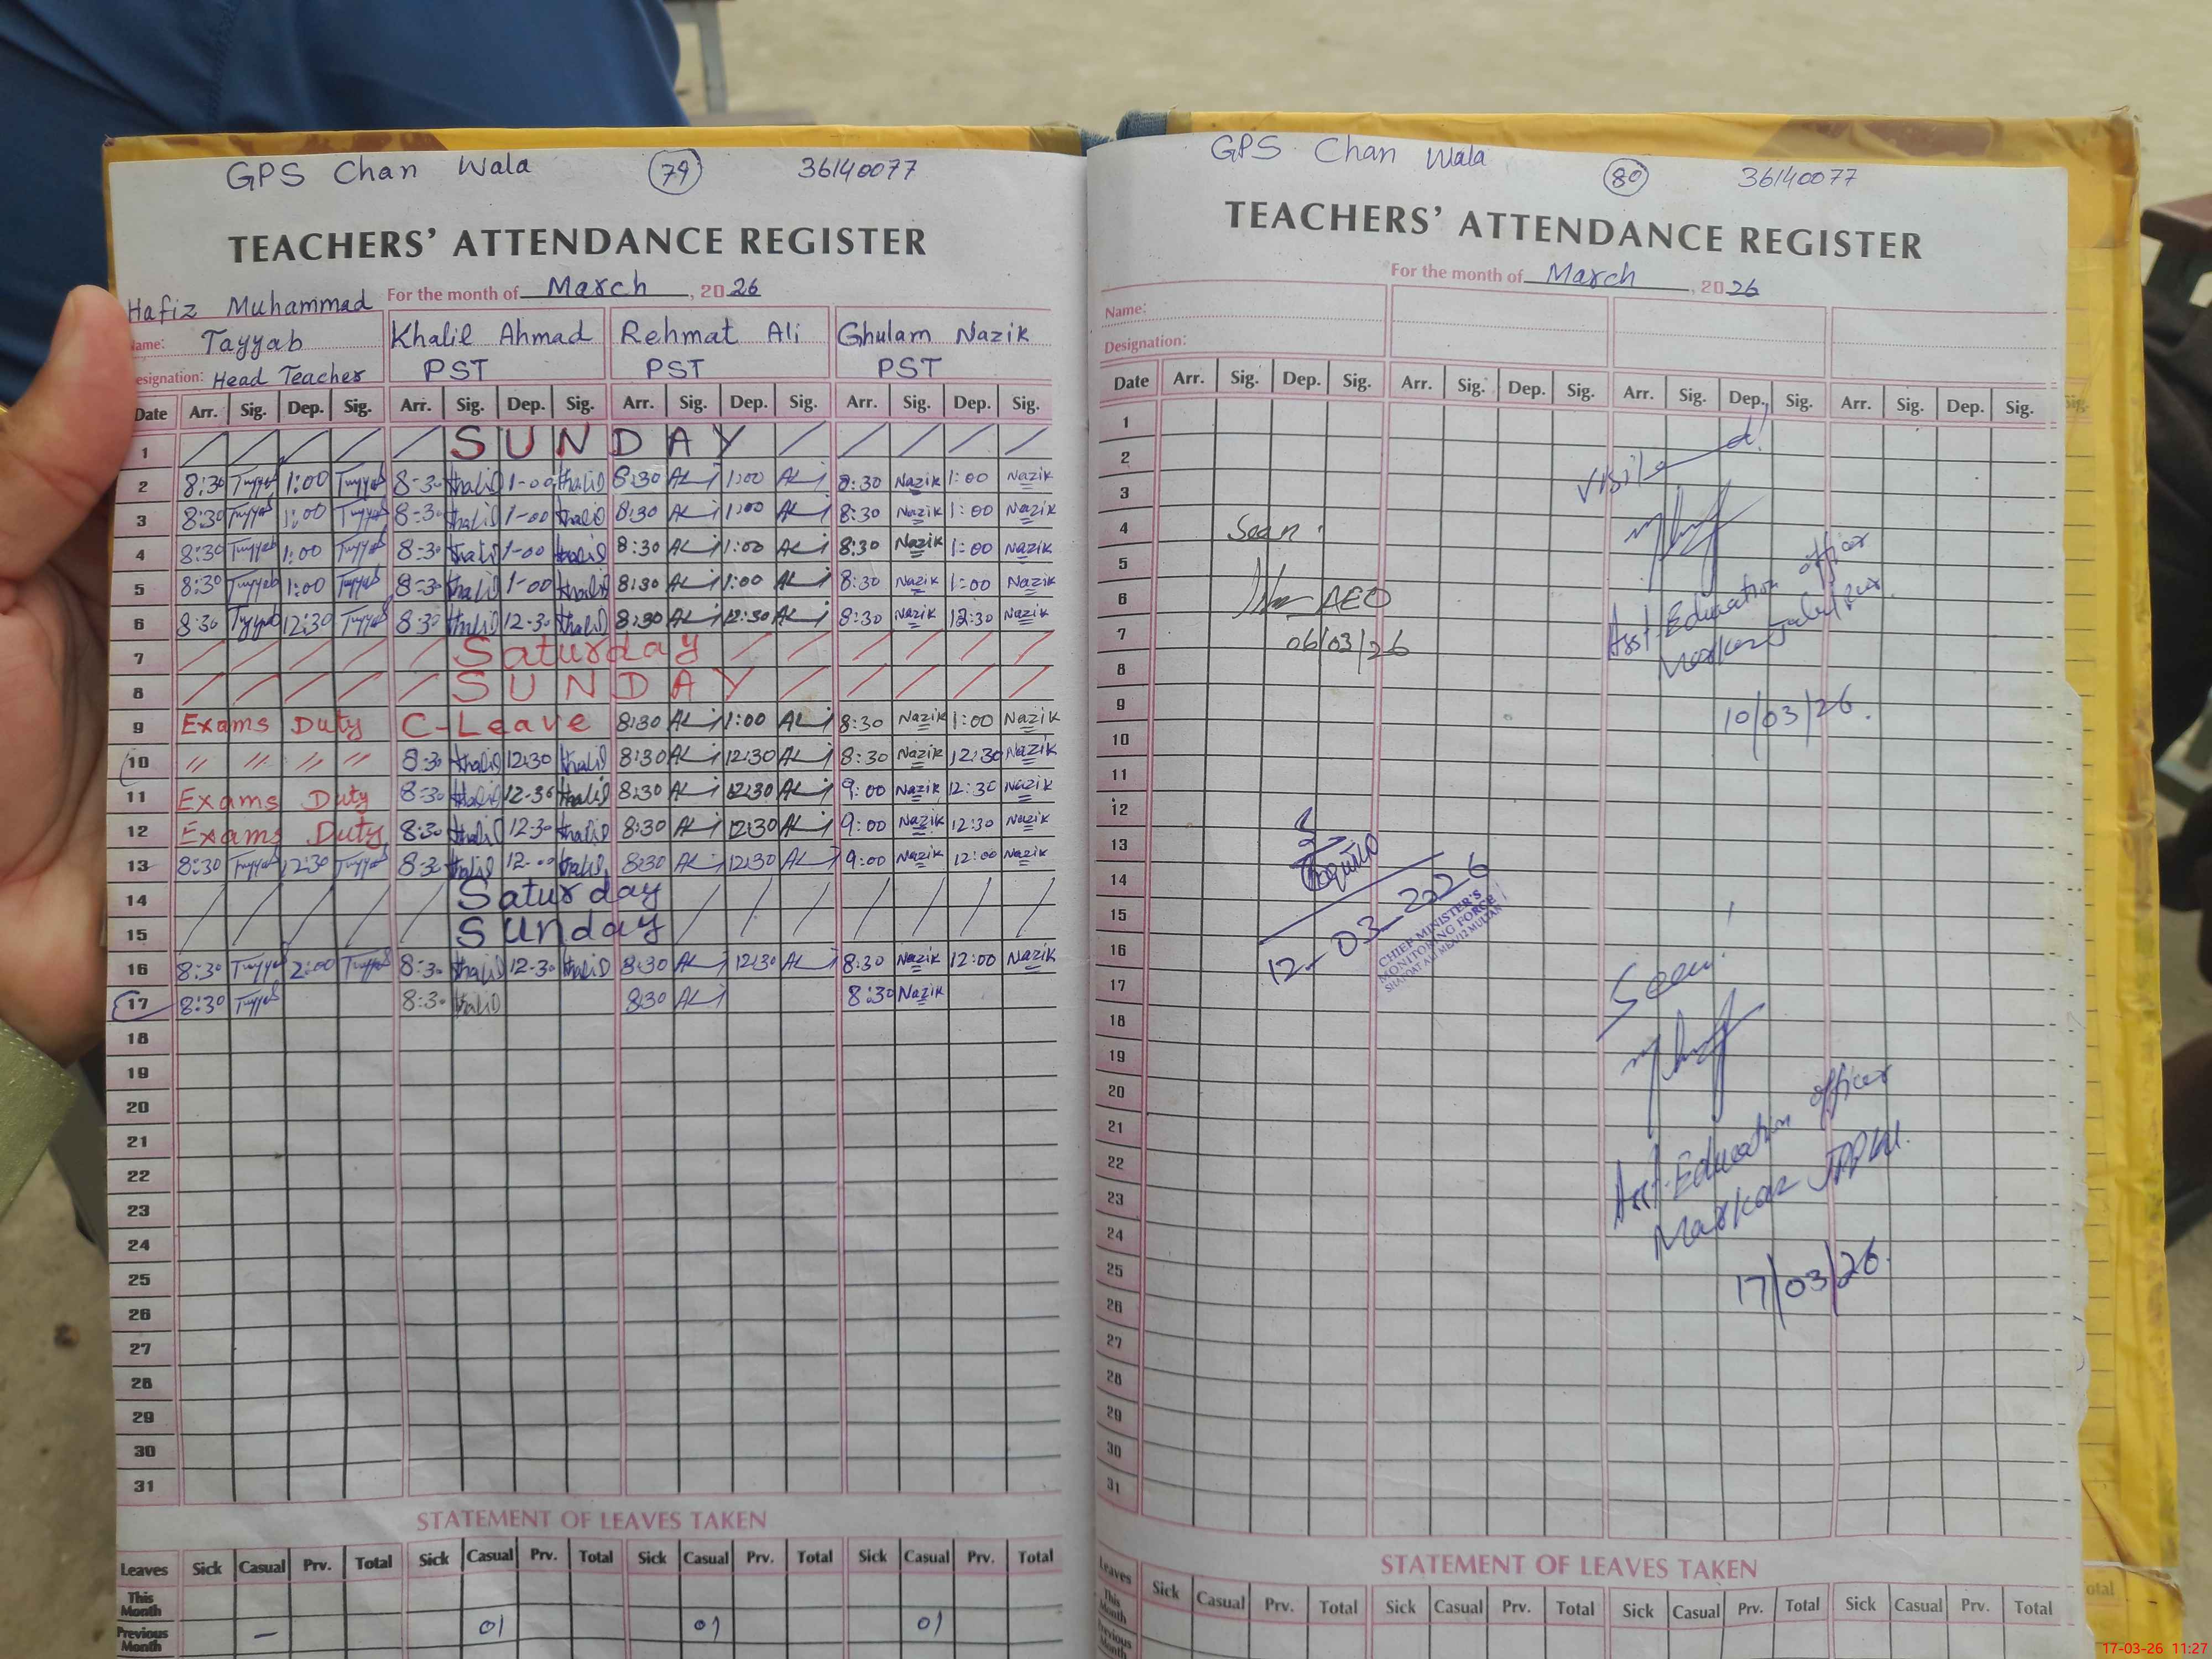 GPS Chan Wala 79 36140077
TEACHERS' ATTENDANCE REGISTER
For the month of March, 2026
Hafiz Muhammad
Name: Tayyab Khalil Ahmad Rehmat Ali Ghulam Nazik
Designation: Head Teacher PST PST PST
Date Arr. Sig. Dep. Sig. Arr. Sig. Dep. Sig. Arr. Sig. Dep. Sig. Arr. Sig. Dep. Sig.
1 SUNDAY
2 8:30 Tayyab 1:00 Tayyab 8-30 Khalid 1-00 Khalid 8:30 ALi 1:00 ALi 8:30 Nazik 1:00 Nazik
3 8:30 Tayyab 1:00 Tayyab 8-30 Khalid 1-00 Khalid 8:30 ALi 1:00 ALi 8:30 Nazik 1:00 Nazik
4 8:30 Tayyab 1:00 Tayyab 8-30 Khalid 1-00 Khalid 8:30 ALi 1:00 ALi 8:30 Nazik 1:00 Nazik
5 8:30 Tayyab 1:00 Tayyab 8-30 Khalid 1-00 Khalid 8:30 ALi 1:00 ALi 8:30 Nazik 1:00 Nazik
6 8:30 Tayyab 12:30 Tayyab 8-30 Khalid 12-30 Khalid 8:30 ALi 12:30 ALi 8:30 Nazik 12:30 Nazik
7 Saturday
8 SUNDAY
9 Exams Duty C-Leave 8:30 ALi 1:00 ALi 8:30 Nazik 1:00 Nazik
10 " " " " 8-30 Khalid 12:30 Khalid 8:30 ALi 12:30 ALi 8:30 Nazik 12:30 Nazik
11 Exams Duty 8-30 Khalid 12-30 Khalid 8:30 ALi 12:30 ALi 9:00 Nazik 12:30 Nazik
12 Exams Duty 8:30 Khalid 12-30 Khalid 8:30 ALi 12:30 ALi 9:00 Nazik 12:30 Nazik
13 8:30 Tayyab 12:30 Tayyab 8-30 Khalid 12-00 Khalid 8:30 ALi 12:30 ALi 9:00 Nazik 12:00 Nazik
14 Saturday
15 Sunday
16 8:30 Tayyab 2:00 Tayyab 8-30 Khalid 12-30 Khalid 8:30 ALi 12:30 ALi 8:30 Nazik 12:00 Nazik
17 8:30 Tayyab 8-30 Khalid 8:30 ALi 8:30 Nazik
18
19
20
21
22
23
24
25
26
27
28
29
30
31
STATEMENT OF LEAVES TAKEN
Leaves Sick Casual Prv. Total Sick Casual Prv. Total Sick Casual Prv. Total Sick Casual Prv. Total
This Month
Previous Month – 01 01 01
GPS Chan Wala 80 36140077
TEACHERS' ATTENDANCE REGISTER
For the month of March, 2026
Name:
Designation:
Date Arr. Sig. Dep. Sig. Arr. Sig. Dep. Sig. Arr. Sig. Dep. Sig. Arr. Sig. Dep. Sig.
1
2
3
4
5
6
7
8
9
10
11
12
13
14
15
16
17
18
19
20
21
22
23
24
25
26
27
28
29
30
31
Seen
AEO
06/03/26
Visited!
Asst. Education officer
Markaz
10/03/26.
12-03-2026
CHIEF MINISTER'S
MONITORING FORCE
Seen!
Asst. Education officer
Markaz
17/03/26.
STATEMENT OF LEAVES TAKEN
Leaves Sick Casual Prv. Total Sick Casual Prv. Total Sick Casual Prv. Total Sick Casual Prv. Total
This Month
Previous Month
17-03-26 11:27